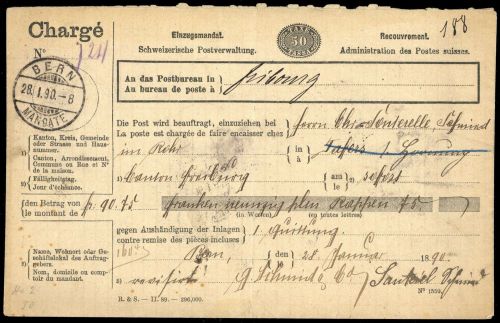 Chargé
Einzugsmandat.
TAXE
50
Recouvrement.
188
Schweizerische Postverwaltung.
Administration des Postes suisses.
N° 724
BERN
28.I.90.-8
MANDATE
An das Postbureau in
Au bureau de poste à
fribourg
Die Post wird beauftragt, einzuziehen bei
La poste est chargée de faire encaisser chez
Herrn
1) Kanton, Kreis, Gemeinde oder Strasse und Hausnummer.
1) Canton, Arrondissement, Commune ou Rue et N° de la maison.
in
à
Tafers
1)
Canton freiburg
2) Fälligkeitstag.
2) Jour d'échéance.
am
le
2)
sofort
den Betrag von
le montant de
fr. 90.75
franken neunzig plus Rappen 75
(in Worten)
(en toutes lettres)
gegen Aushändigung der Inlagen
contre remise des pièces incluses
1 Quittung.
3) Name, Wohnort oder Geschäftslokal des Auftraggebers.
3) Nom, domicile ou comptoir du mandant.
Bern, den
le
28. Januar 1890.
3)
R. & S. — II. 89. — 296,000.
N° 1559.